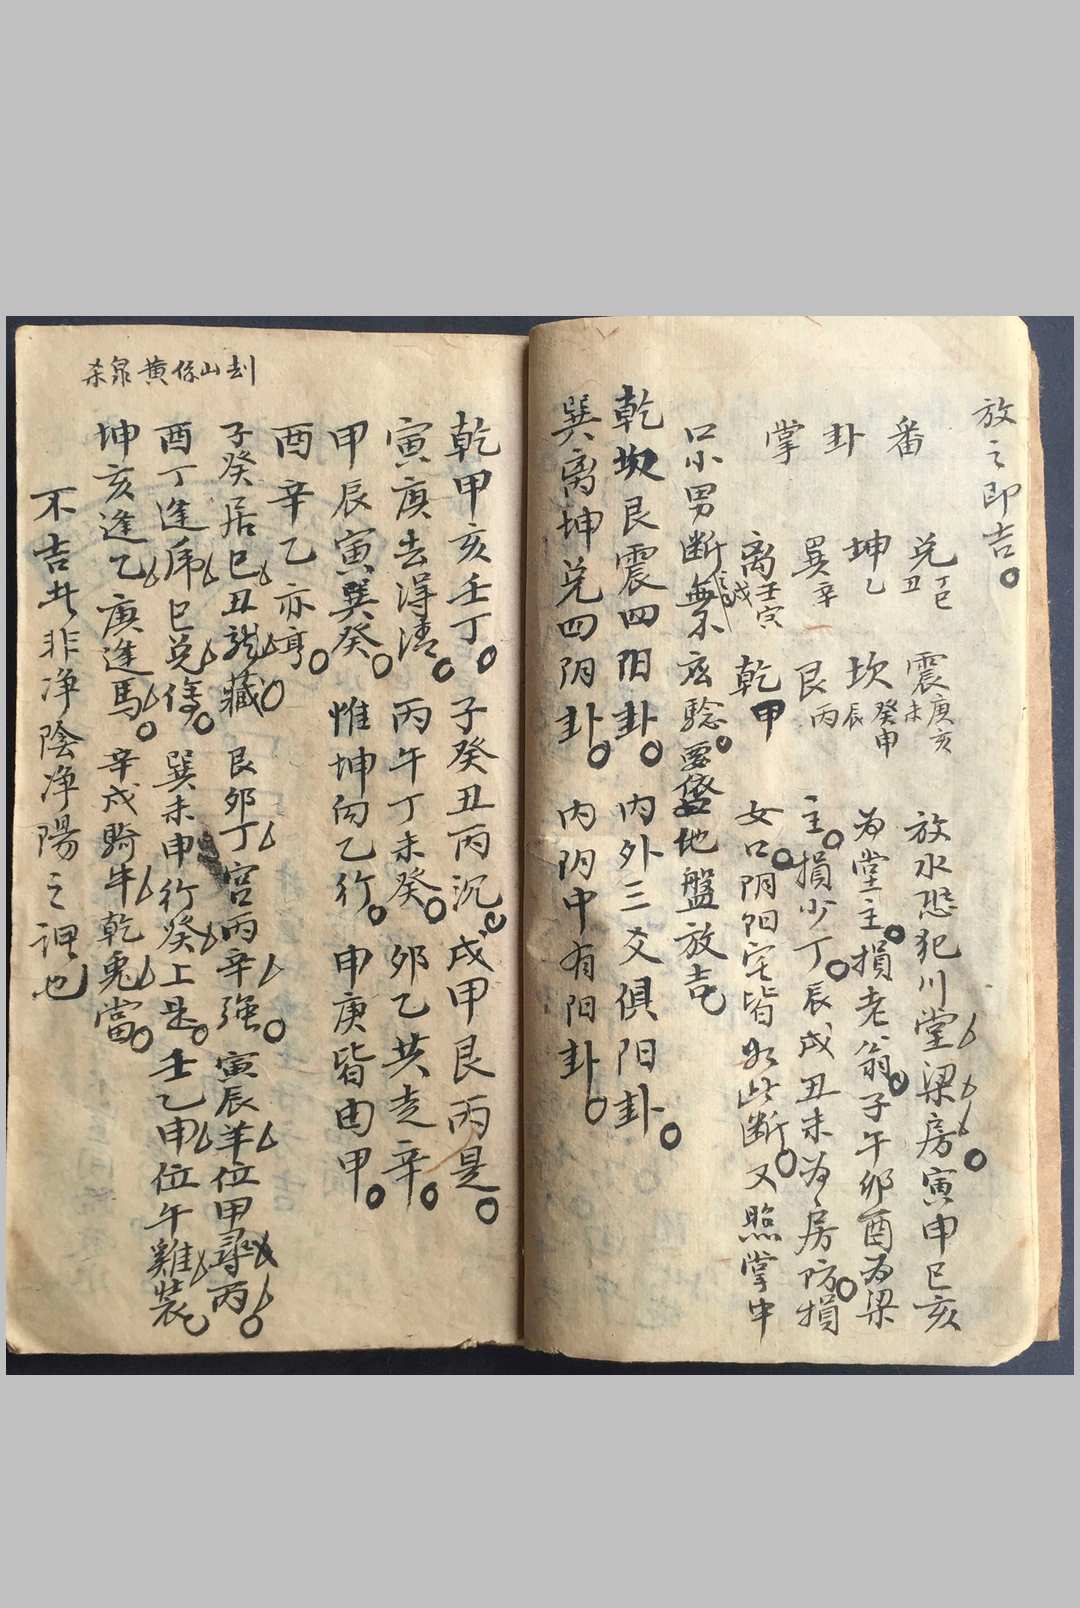 放之即吉。
番卦掌
兑丁巳丑 震庚亥未 放水恐犯川堂梁房寅申巳亥
坤乙 坎癸申辰 为堂主。損老翁。子午卯酉为梁
巽辛 艮丙 主。損少丁。辰戌丑未为房防損
离壬寅戌 乾甲 女口。阴阳宅皆如此断。又照掌中
口小男断無不应驗。要 地盤放吉
乾坎艮震四阳卦。 内外三爻俱阳卦。
巽离坤兑四阴卦。 内阴中有阳卦。
乾甲亥壬丁。 子癸丑丙沉。戌甲艮丙是。
寅庚去淂清。 丙午丁未癸。 卯乙共走辛。
甲辰寅巽癸。 惟坤向乙行。 申庚皆由甲。
酉辛乙亦亨。
子癸居巳丑龍藏。 艮卯丁宫丙辛强。 寅辰羊位甲尋丙。
酉丁逢虎巳兑傍。 巽未申行癸上是。 壬乙申位午雞裝。
坤亥逢乙庚逢馬。 辛戌騎牛乾兎當。
不吉此非净陰净陽之 也
刦山係黄泉杀